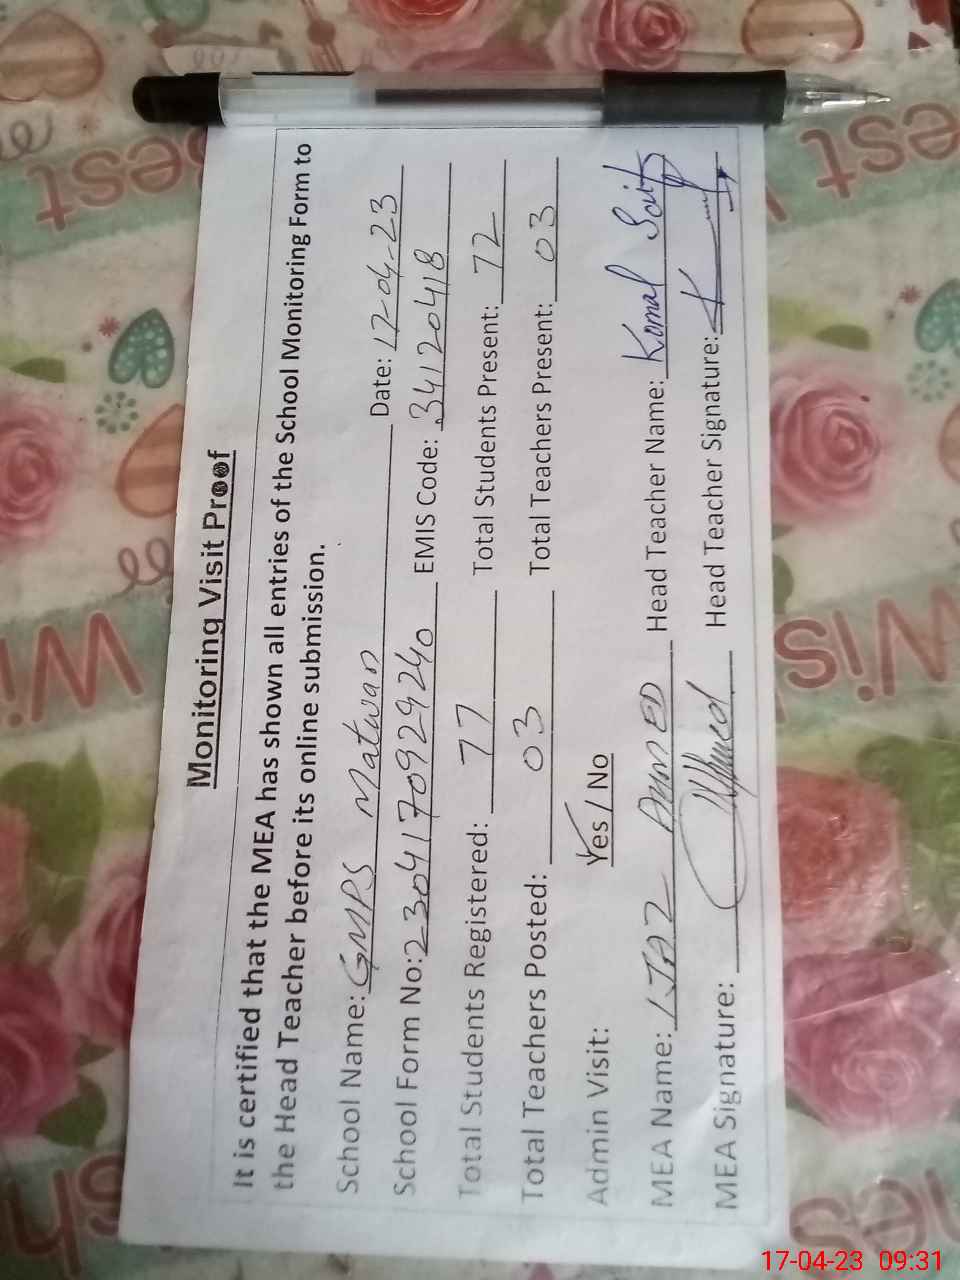 Monitoring Visit Proof
It is certified that the MEA has shown all entries of the School Monitoring Form to
the Head Teacher before its online submission.
School Name: GMPS Matwan Date: 17-04-23
School Form No: 230417092924o EMIS Code: 34120418
Total Students Registered: 77 Total Students Present: 72
Total Teachers Posted: 03 Total Teachers Present: 03
Admin Visit: Yes / No
MEA Name: IJAZ AHMED Head Teacher Name: Komal
MEA Signature: Head Teacher Signature:
17-04-23 09:31